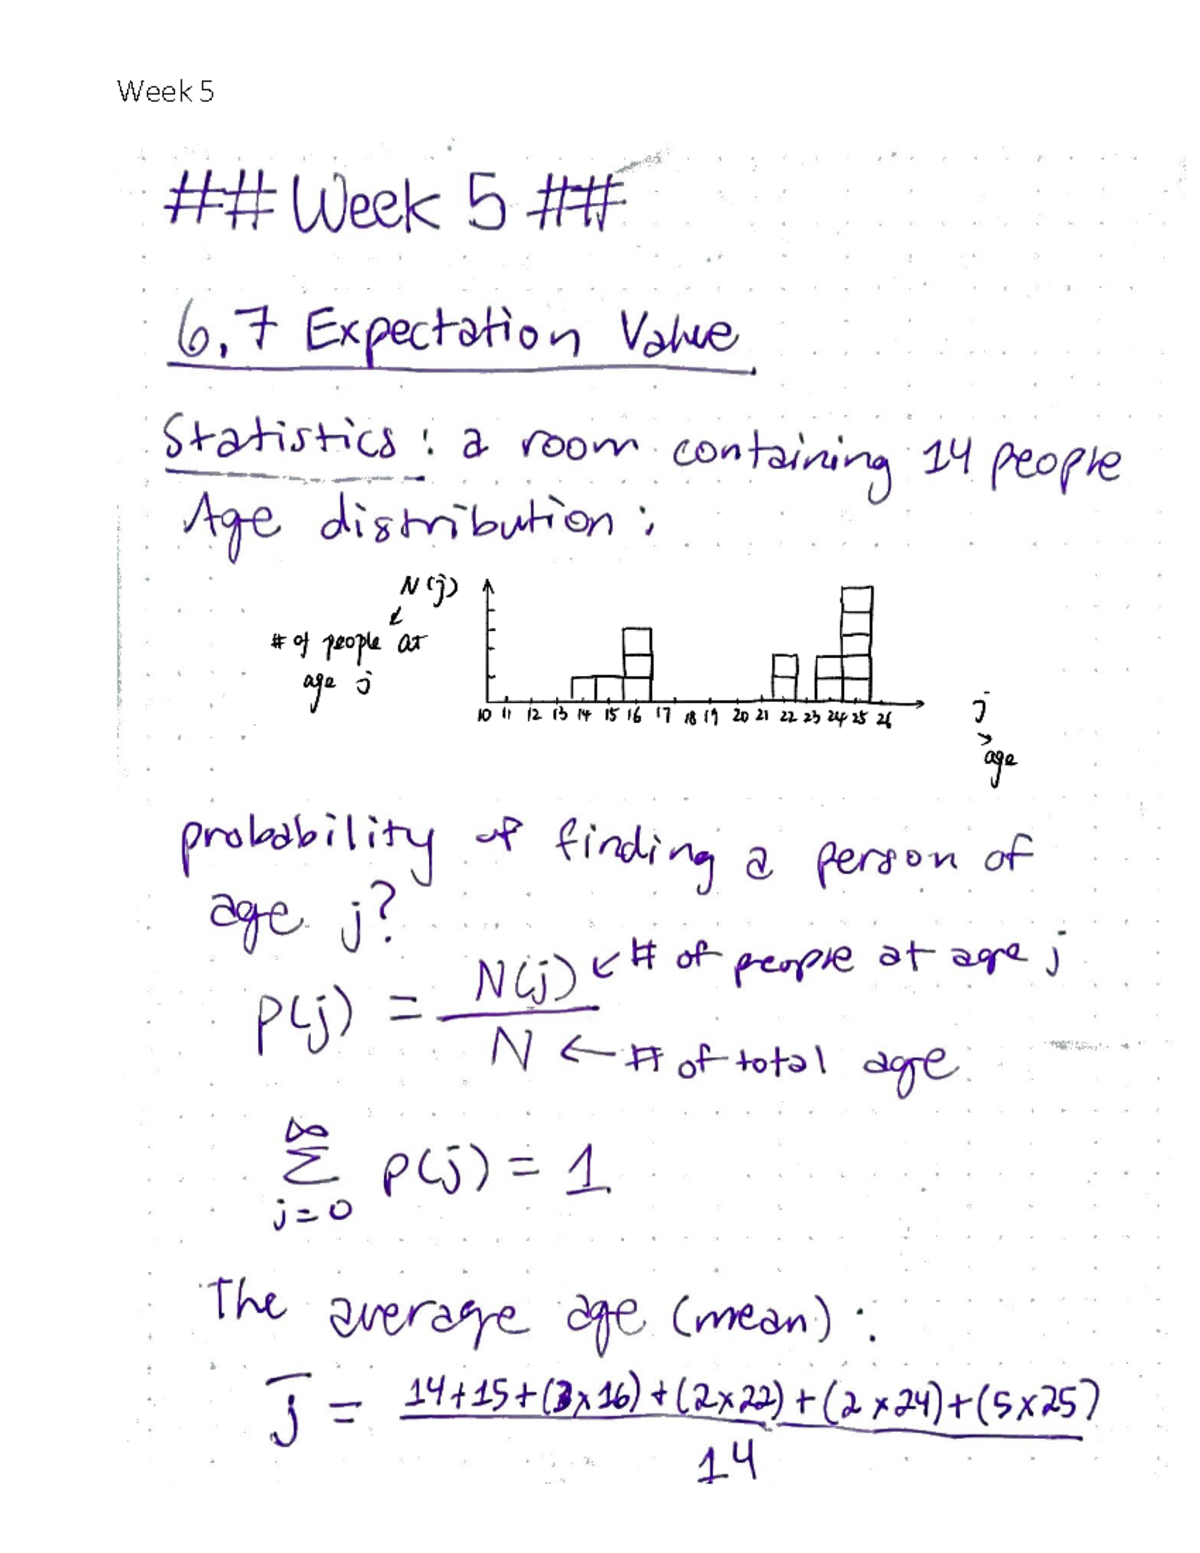 Week 5
## Week 5 ##
6.7 Expectation Value
Statistics: a room containing 14 people
Age distribution:
N(j)
# of people at
age j
10 11 12 13 14 15 16 17 18 19 20 21 22 23 24 25 26
j
age
probability of finding a person of
age j?
P(j) = N(j) ← # of people at age j
N ← # of total age
∞
Σ P(j) = 1
j=0
The average age (mean):
j̄ = 14+15+(3×16)+(2×22)+(2×24)+(5×25)
14